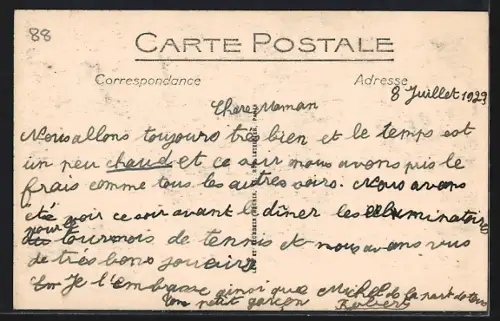 88
CARTE POSTALE
Correspondance
Adresse
8 Juillet 1929
Chere Maman
Nous allons toujours très bien et le temps est
un peu chaud et ce soir nous avons pris le
frais comme tous les autres soirs. Nous avons
été voir ce soir avant le dîner les éliminatoires
pour
des tournois de tennis et nous avons vus
de très bons joueurs
Je t'embrasse ainsi que Michel de la part de
ton petit garçon Robert